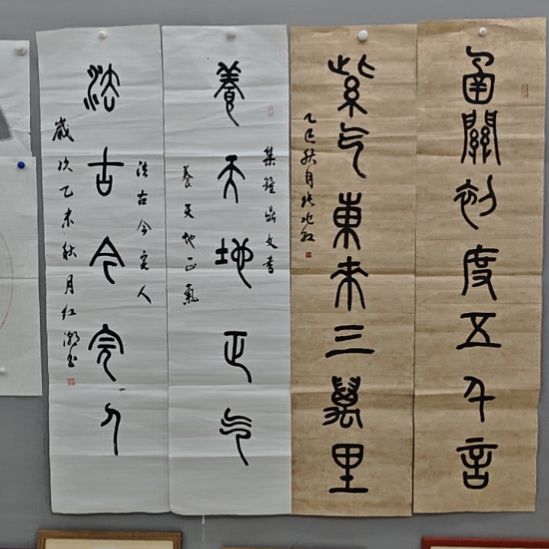 函關初度五千言
紫气東來三萬里
乙巳秋月
集鐘鼎文書
養天地正气
養天地正氣
法古今完人
法古今完人
歲次乙未秋月红书